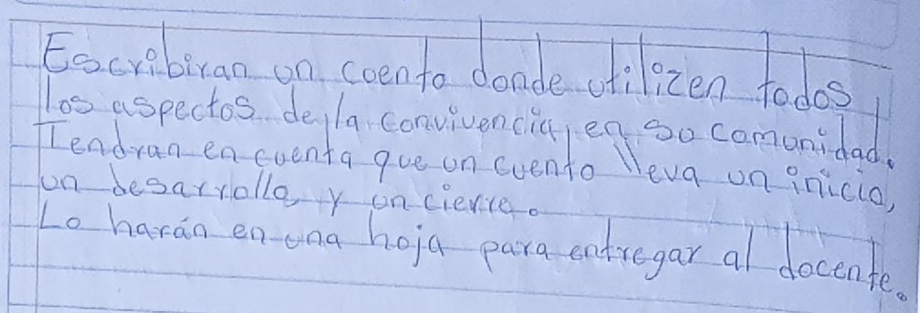 Escribiran un cuento donde utilizen todos
los aspectos de la convivencia, en su comunidad.
Tendran en cuenta que un cuento lleva un inicio,
un desarrollo y un cierre.
Lo harán en una hoja para entregar al docente.